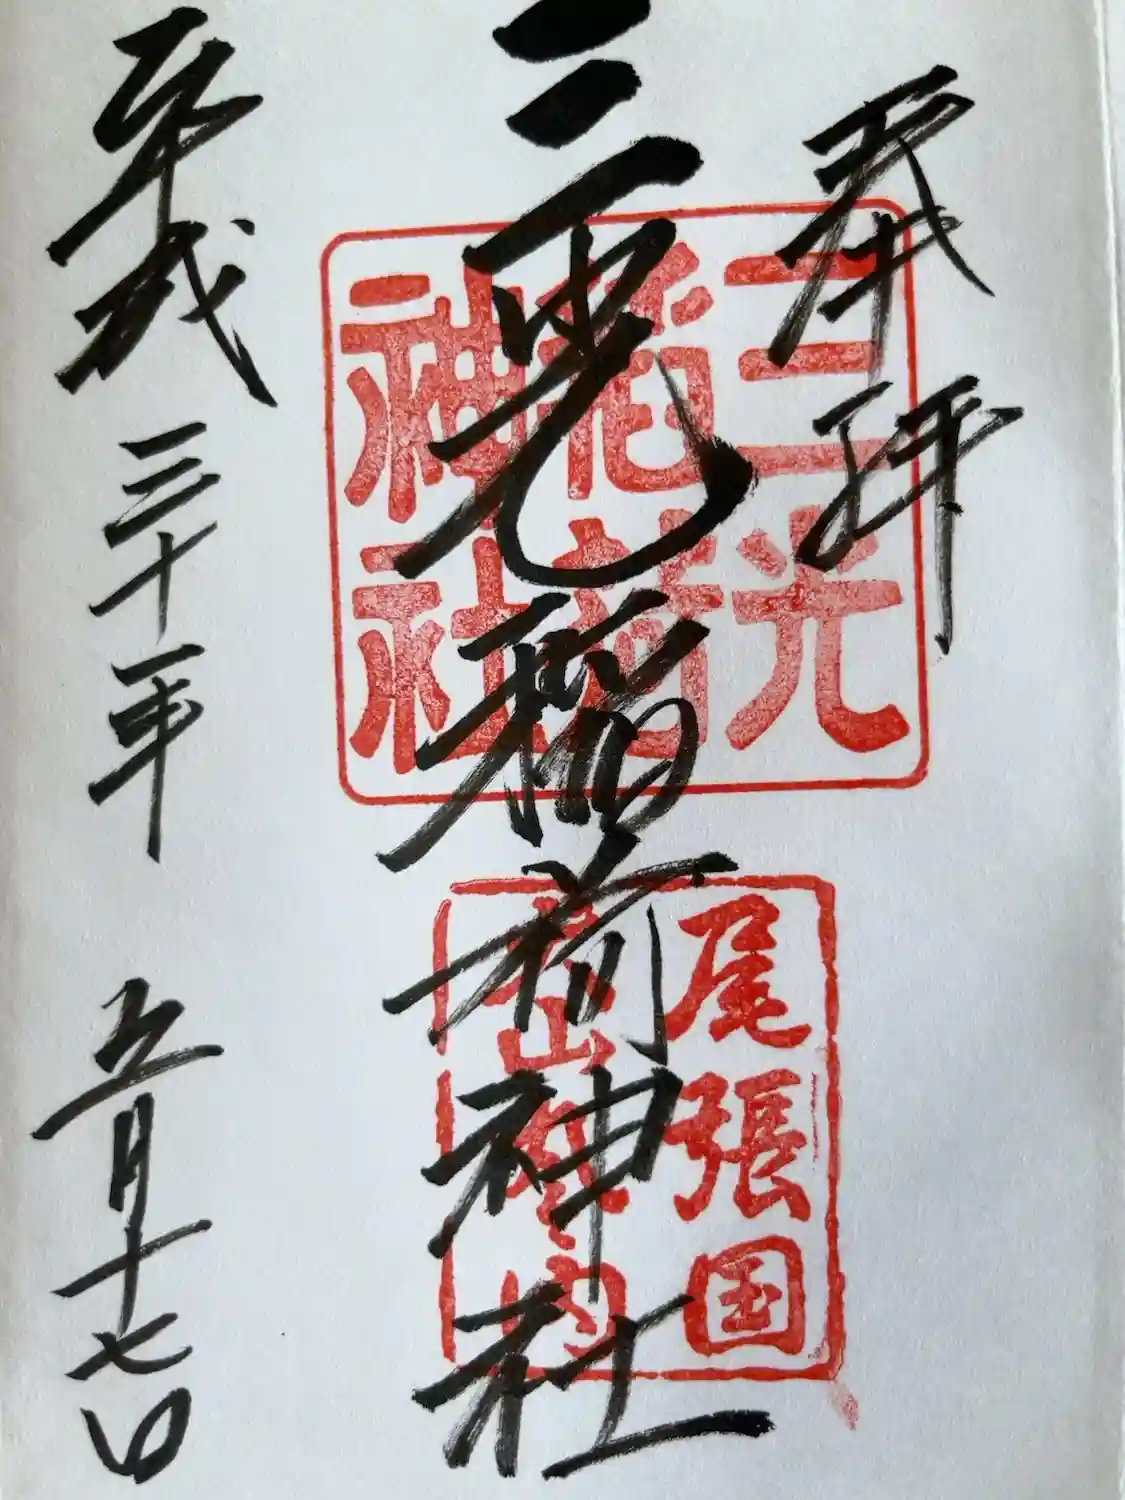 奉拝
三光稲荷神社
平成三十年 五月十七日
三光
稲荷
神社
尾張国
犬山城内